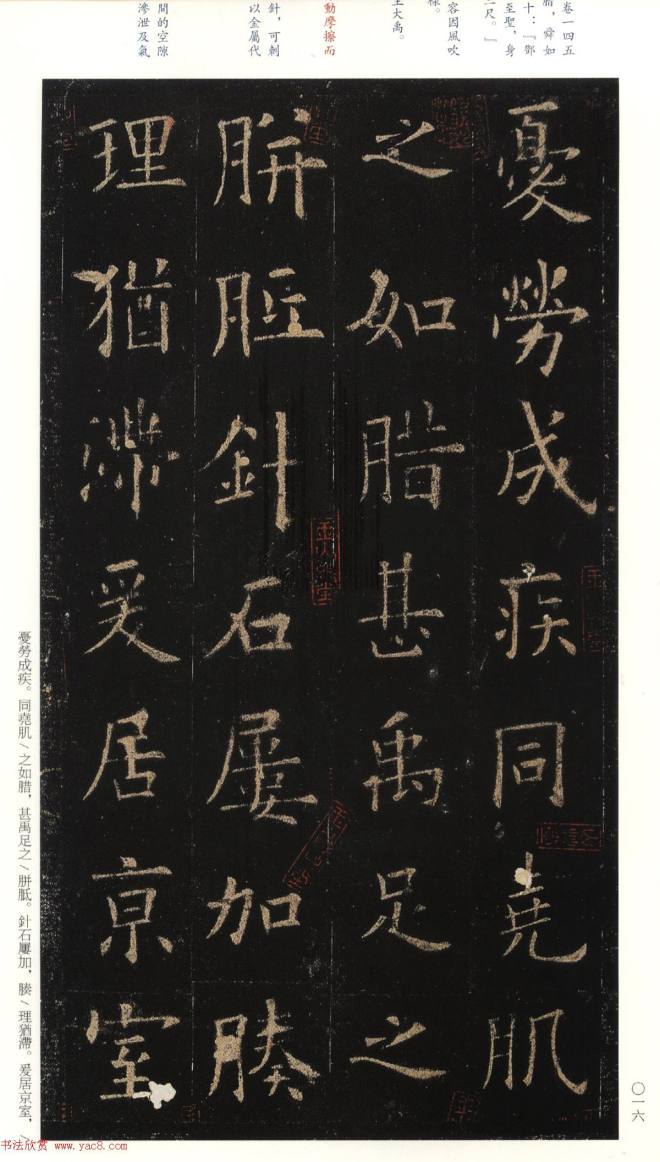 卷一四五
腊，舜如
十：『鄧
至聖，身
二尺。』
容因風吹
樣。
王大禹。
動摩擦而
針，可刺
以金屬代
間的空隙
滲泄及氣
憂勞成疾同堯肌
之如腊甚禹足之
胼胝針石屢加腠
理猶滯爰居京室
憂勞成疾。同堯肌／之如腊，甚禹足之／胼胝。針石屢加，腠／理猶滯。爰居京室，／
〇一六
书法欣赏 www.yac8.com